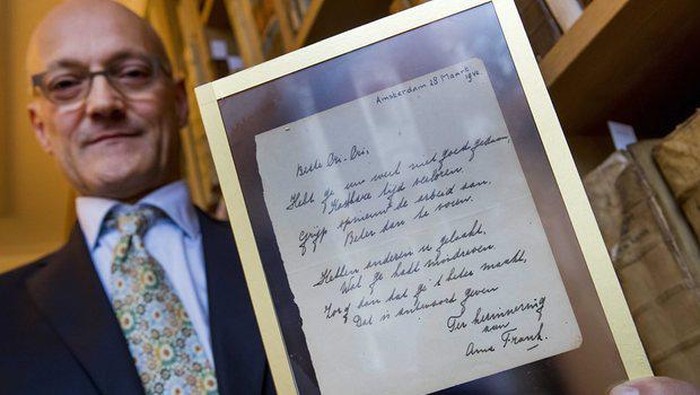 Amsterdam 28 Maart
1942
Beste Cri-Cri,
Hebt ge uw werk niet goed gedaan,
Kostbare tijd verloren,
Grijp opnieuw de arbeid aan,
Beter dan te voren.
Hebben anderen u gelaakt,
Wat ge hadt misdreven,
Zorg dan dat ge 't beter maakt,
Dat is antwoord geven
Ter herinnering
van
Anne Frank.